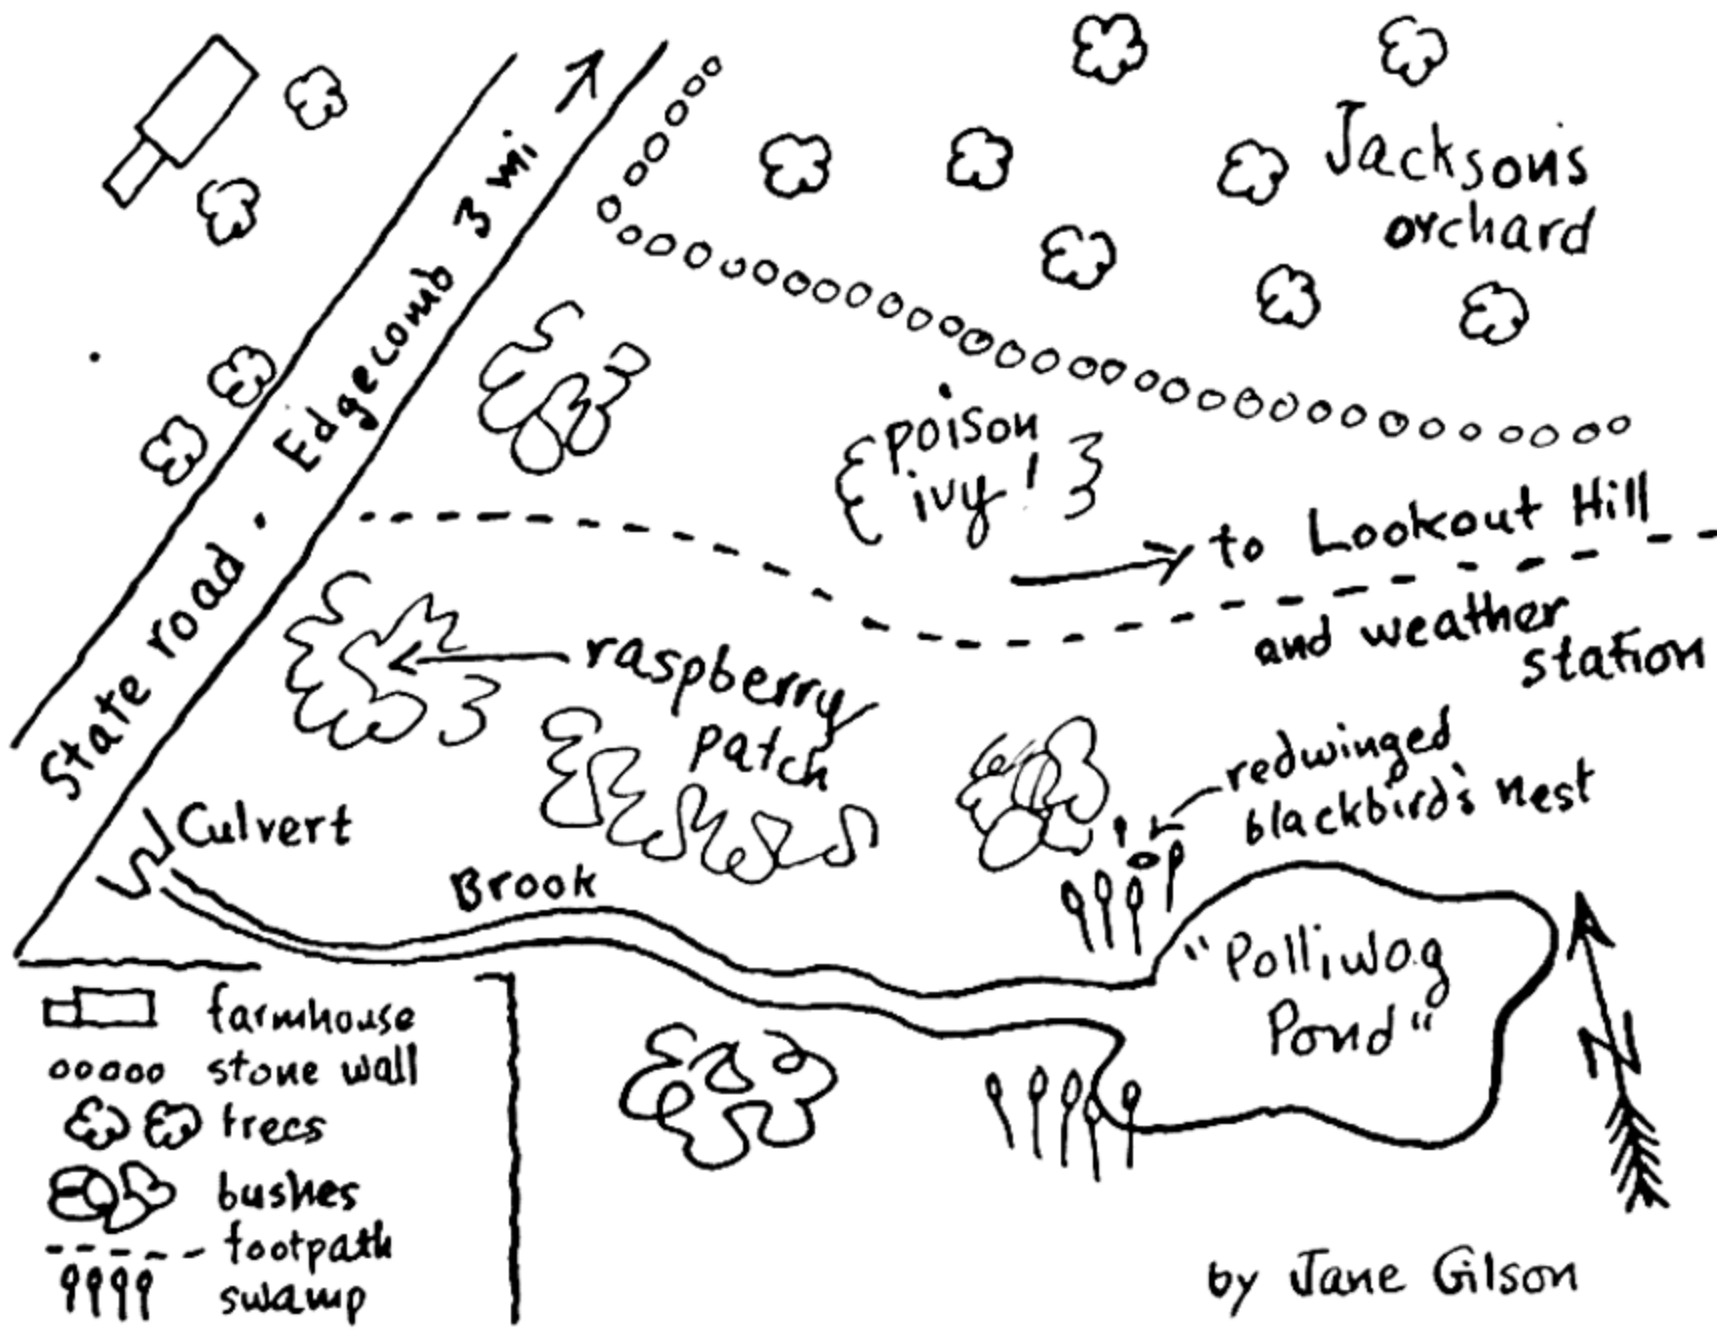 Jackson's
orchard
State road. Edgecomb 3 mi
poison
ivy!
to Lookout Hill
and weather
station
raspberry
patch
redwinged
blackbird's nest
Culvert
Brook
"Polliwog
Pond"
N
farmhouse
stone wall
trees
bushes
footpath
swamp
by Jane Gilson